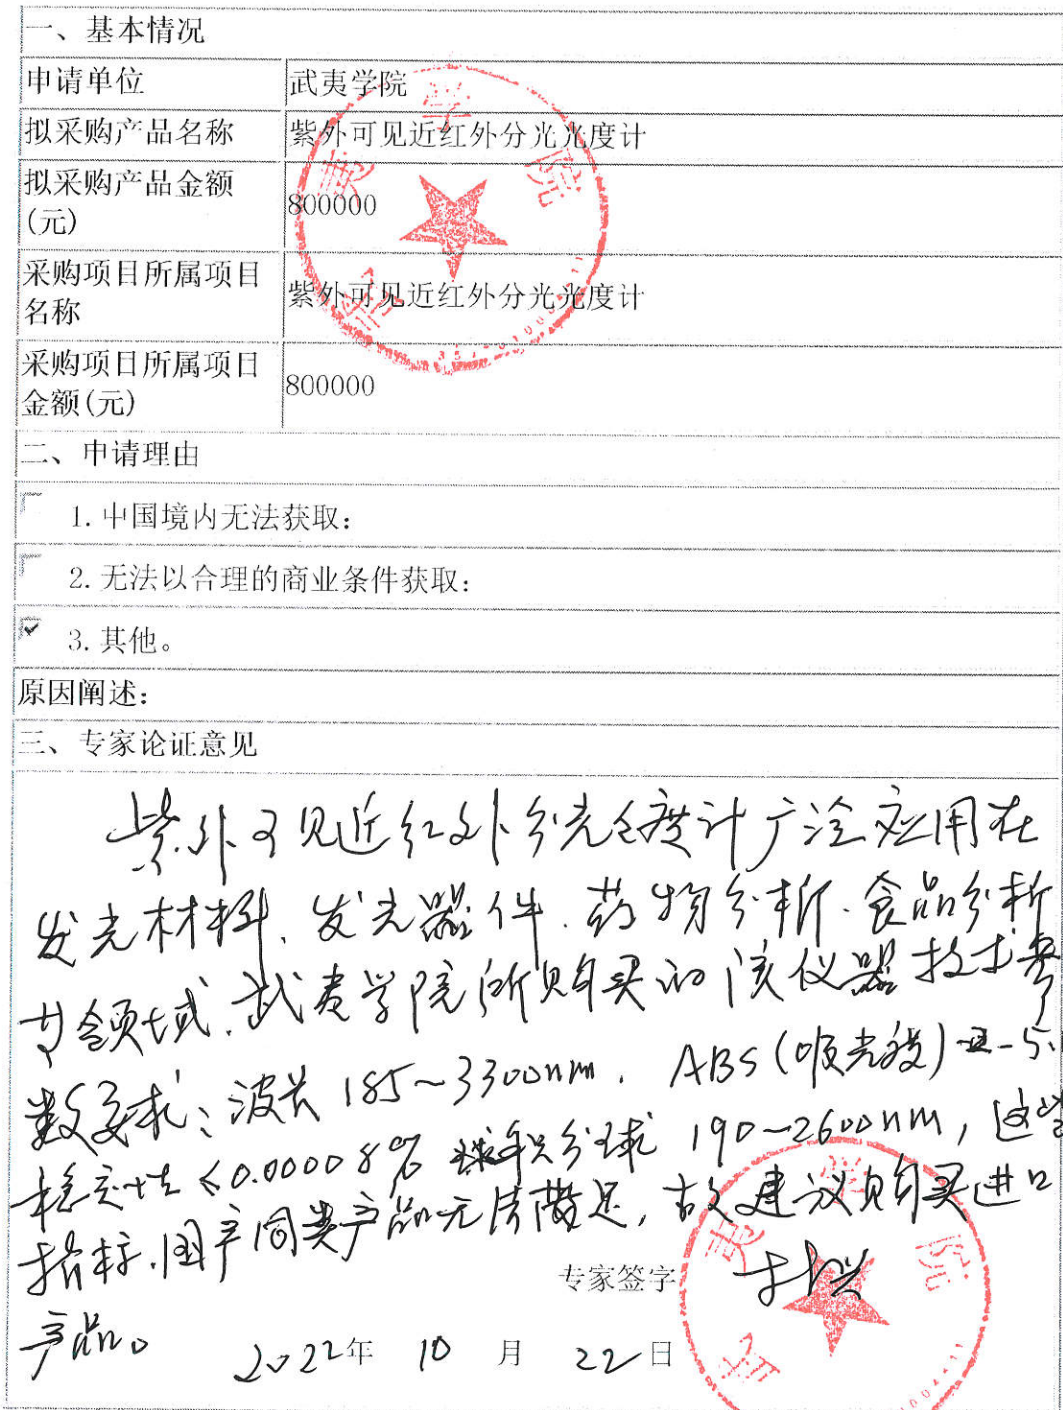 一、基本情况
申请单位
武夷学院
拟采购产品名称
紫外可见近红外分光光度计
拟采购产品金额
(元)
800000
采购项目所属项目
名称
紫外可见近红外分光光度计
采购项目所属项目
金额(元)
800000
二、申请理由
1.中国境内无法获取:
2.无法以合理的商业条件获取:
3.其他。
原因阐述:
三、专家论证意见
紫外可见近红外分光光度计广泛应用在
发光材料、发光器件、药物分析、食品分析
等领域.武夷学院所购买的该仪器技术参
数要求:波长185~3300nm. ABS(吸光度) -5.
稳定性≤0.00008% 积分球 190~2600nm,这些
指标.国产同类产品无法满足,故建议购买进口
产品。
专家签字
2022年 10 月 22日
武夷学院
武夷学院